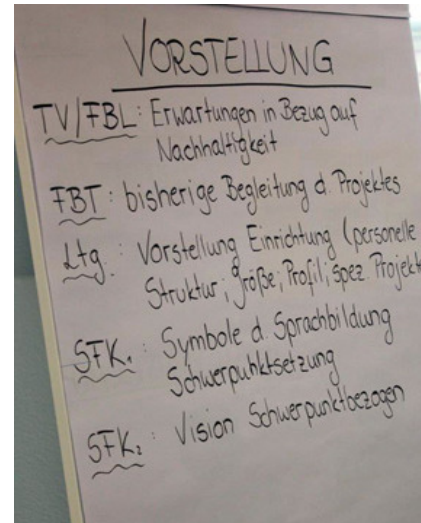 VORSTELLUNG
TV/FBL: Erwartungen in Bezug auf
Nachhaltigkeit
FBT: bisherige Begleitung d. Projektes
Ltg.: Vorstellung Einrichtung (personelle
Struktur; größe; Profil; spez. Projekt
SFK₁: Symbole d. Sprachbildung
Schwerpunktsetzung
SFK₂: Vision Schwerpunktbezogen